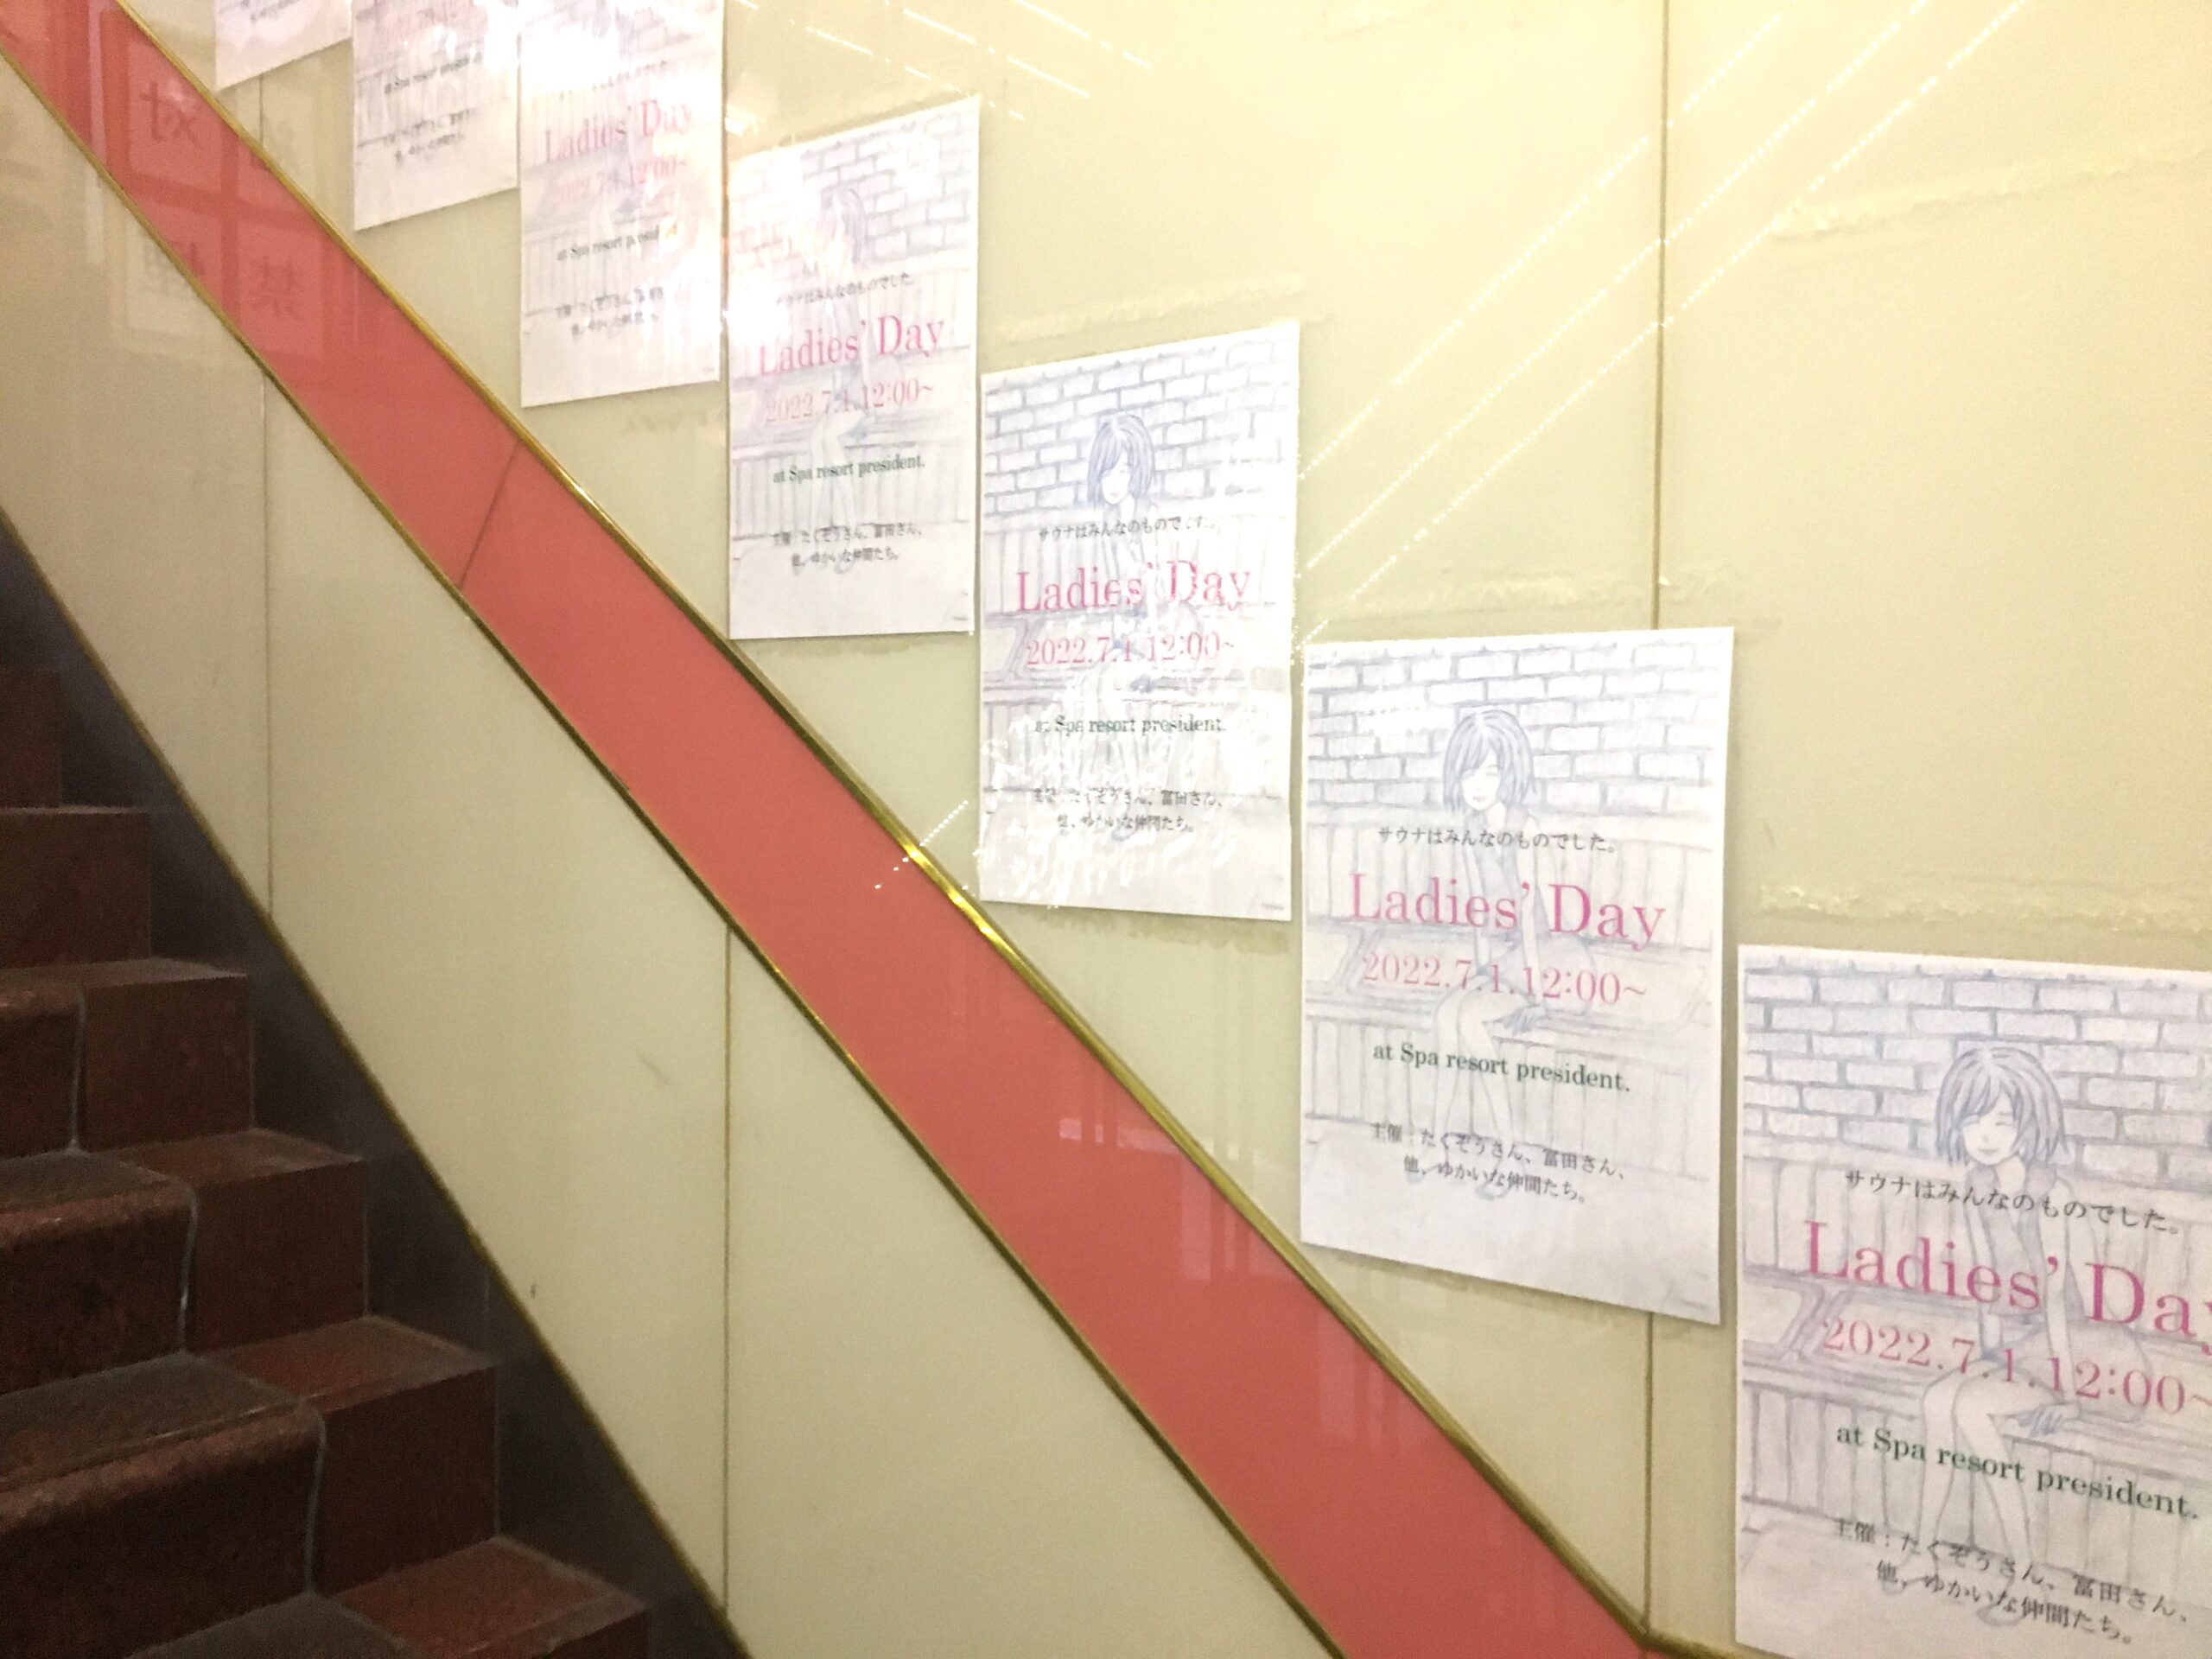 at Spa resort president.
Ladies' Day
2022.7.1.12:00~
at Spa resort president.
サウナはみんなのものでした。
Ladies' Day
2022.7.1.12:00~
at Spa resort president.
主催：たくぞうさん、冨田さん、
他、ゆかいな仲間たち。
サウナはみんなのものでした。
Ladies' Day
2022.7.1.12:00~
at Spa resort president.
主催：たくぞうさん、冨田さん、
他、ゆかいな仲間たち。
サウナはみんなのものでした。
Ladies' Day
2022.7.1.12:00~
at Spa resort president.
主催：たくぞうさん、冨田さん、
他、ゆかいな仲間たち。
サウナはみんなのものでした。
Ladies' Day
2022.7.1.12:00~
at Spa resort president.
主催：たくぞうさん、冨田さん、
他、ゆかいな仲間たち。